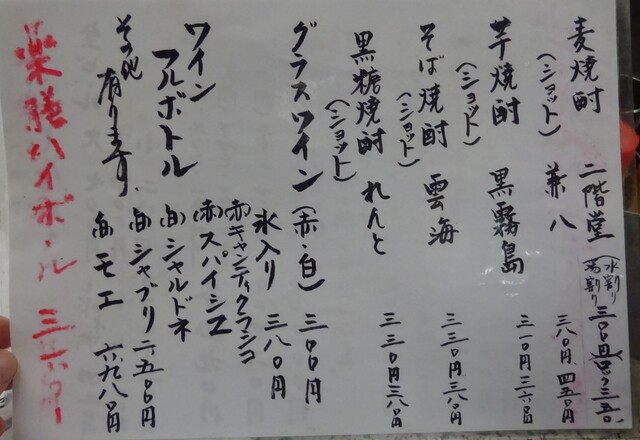 麦焼酎 二階堂 (水割り 湯割り 三〇〇円
(ショット) 兼八 三八〇円 四五〇円
芋焼酎 黒霧島 三一〇円 三六〇円
(ショット)
そば焼酎 雲海 三三〇円 三八〇円
(ショット)
黒糖焼酎 れんと 三三〇円 三八〇円
(ショット)
グラスワイン(赤・白) 三〇〇円
氷入り 三八〇円
ワイン (赤)キャンティクラシコ
フルボトル (赤)スパイシエ
(白)シャルドネ
その他 有ります。 (白)シャブリ 二五〇〇円
(白)モエ 六、九八〇円
薬膳ハイボール 三六〇円